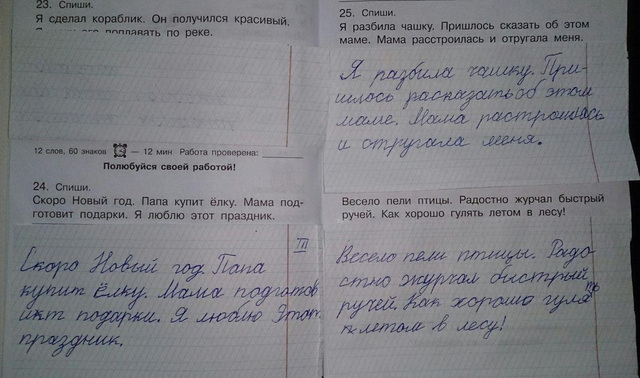 23. Спиши.
Я сделал кораблик. Он получился красивый.
поплавать по реке.
12 слов, 60 знаков — 12 мин Работа проверена:
Полюбуйся своей работой!
24. Спиши.
Скоро Новый год. Папа купит ёлку. Мама под-
готовит подарки. Я люблю этот праздник.
III
Скоро Новый год. Папа
купит ёлку. Мама подготов
икт подарки. Я люблю этот
праздник.
25. Спиши.
Я разбила чашку. Пришлось сказать об этом
маме. Мама расстроилась и отругала меня.
Я разбила чашку. При-
шлось расказать об этом
маме. Мама растроилась
и отругала меня.
Весело пели птицы. Радостно журчал быстрый
ручей. Как хорошо гулять летом в лесу!
Весело пели птицы. Радо
стно журчал быстрый
ручей. Как хорошо гуля
ть летом в лесу!